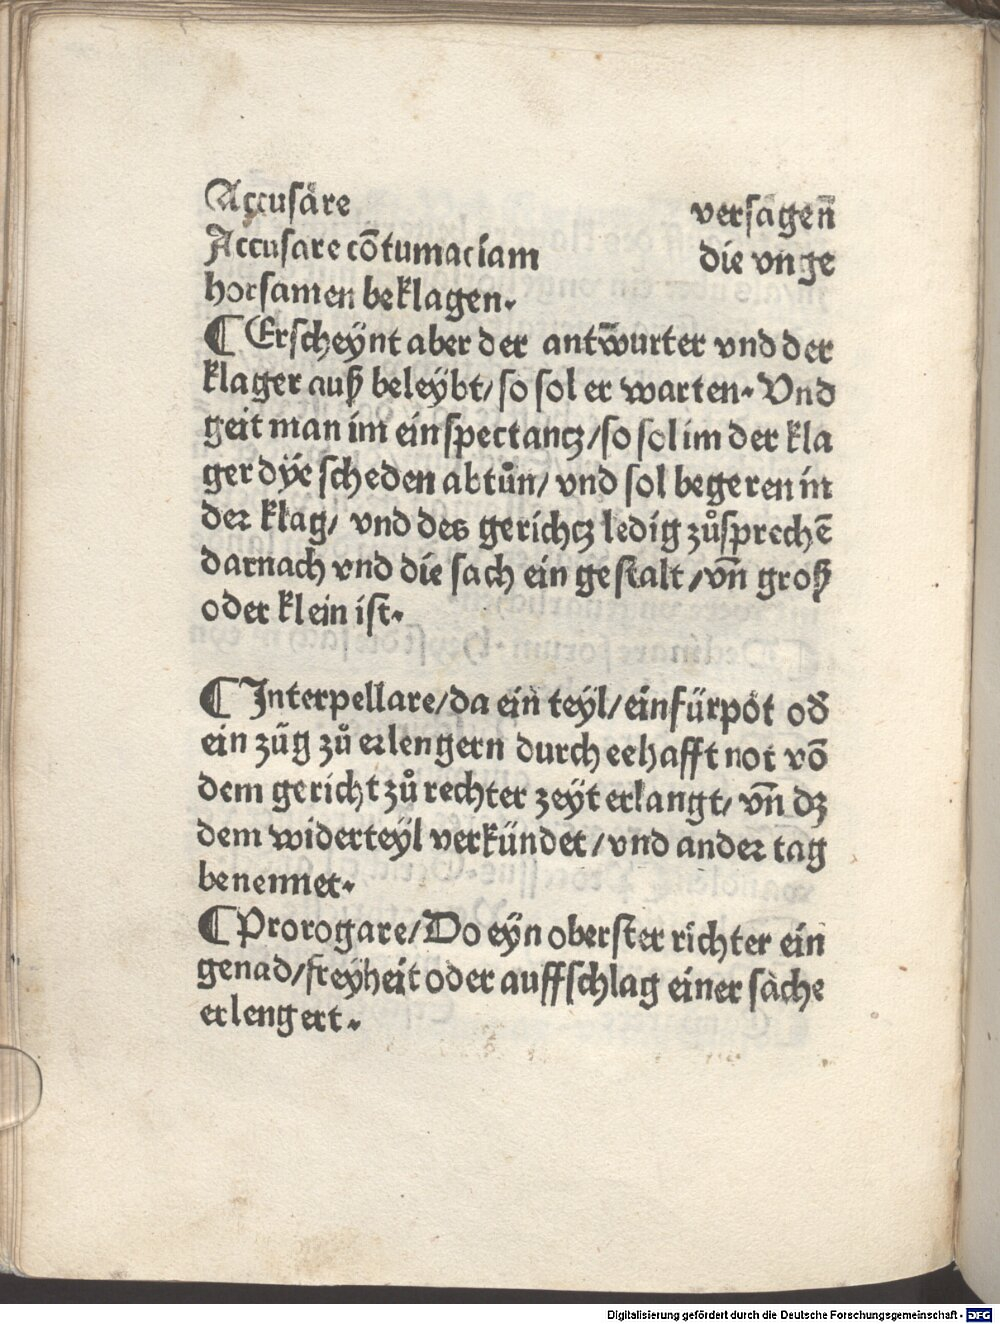 Accusare versagenn
Accusare cōtumaciam die vnge
horsamen beklagen.
¶ Erscheynt aber der antwurter vnd der
klager auß beleybt/ so sol er warten. Vnd
geit man im ein spectantz/ so sol im der kla
ger dye scheden abtůn/ vnd sol begeren in
der klag/ vnd des gerichtz ledig zůsprechē
darnach vnd die sach ein gestalt/ vn̄ groß
oder klein ist.
¶ Interpellare/ da ein teyl/ ein fürpot od̕
ein züg zů erlengern durch eehafft not vō
dem gericht zů rechter zeyt erlangt/ vn̄ dz
dem widerteyl verkündet/ vnd ander tag
benennet.
¶ Prorogare/ Do eyn oberster richter ein
genad/ freyheit oder auffschlag einer sache
erlengert.
Digitalisierung gefördert durch die Deutsche Forschungsgemeinschaft - DFG